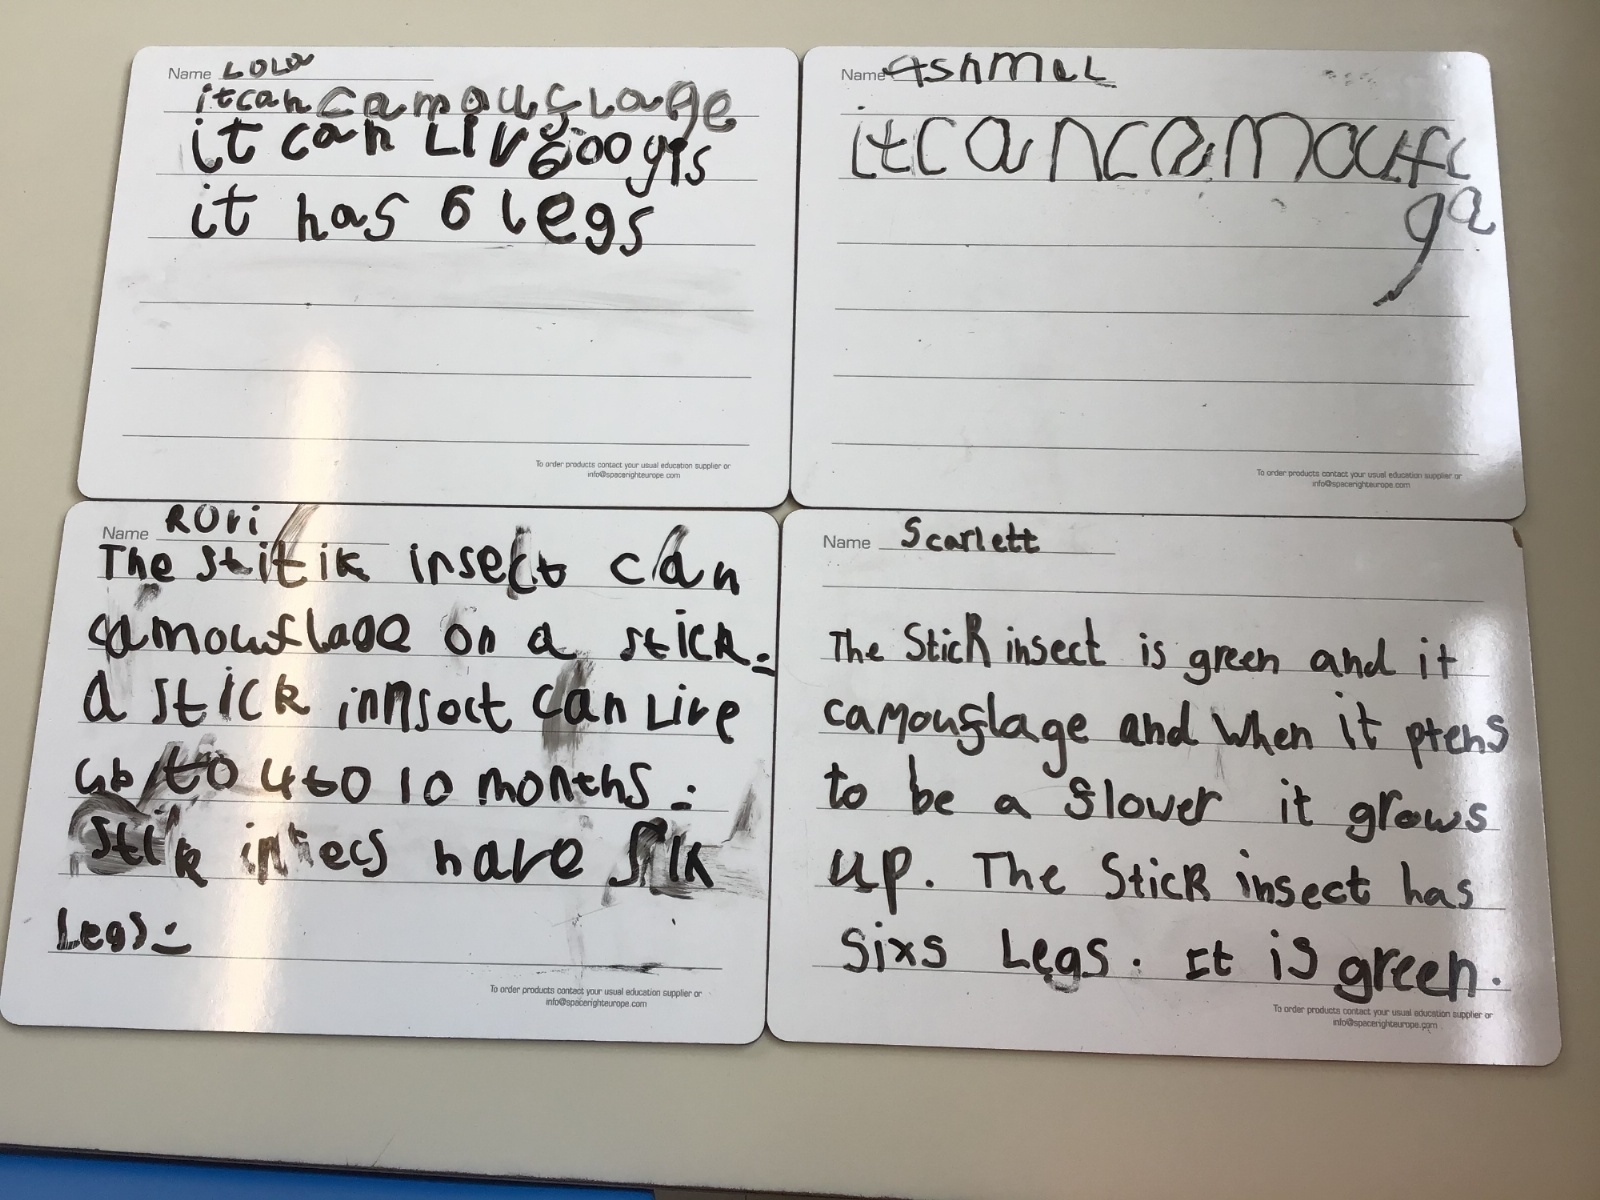 Name Lola
it can camouflage
it can Liv 600 yis
it has 6 legs
To order products contact your usual education supplier or
info@spacerighteurope.com
Name Ashmal
it can camoufl
ga
To order products contact your usual education supplier or
info@spacerighteurope.com
Name RORi
The stitik insect can
camouflage on a stick.
a stick innsoct can Live
ub to 4 to 10 months.
stik insecs have sik
Legs.
To order products contact your usual education supplier or
info@spacerighteurope.com
Name Scarlett
The Stick insect is green and it
camouflage and when it ptens
to be a flower it grows
up. The Stick insect has
sixs Legs. It is green.
To order products contact your usual education supplier or
info@spacerighteurope.com